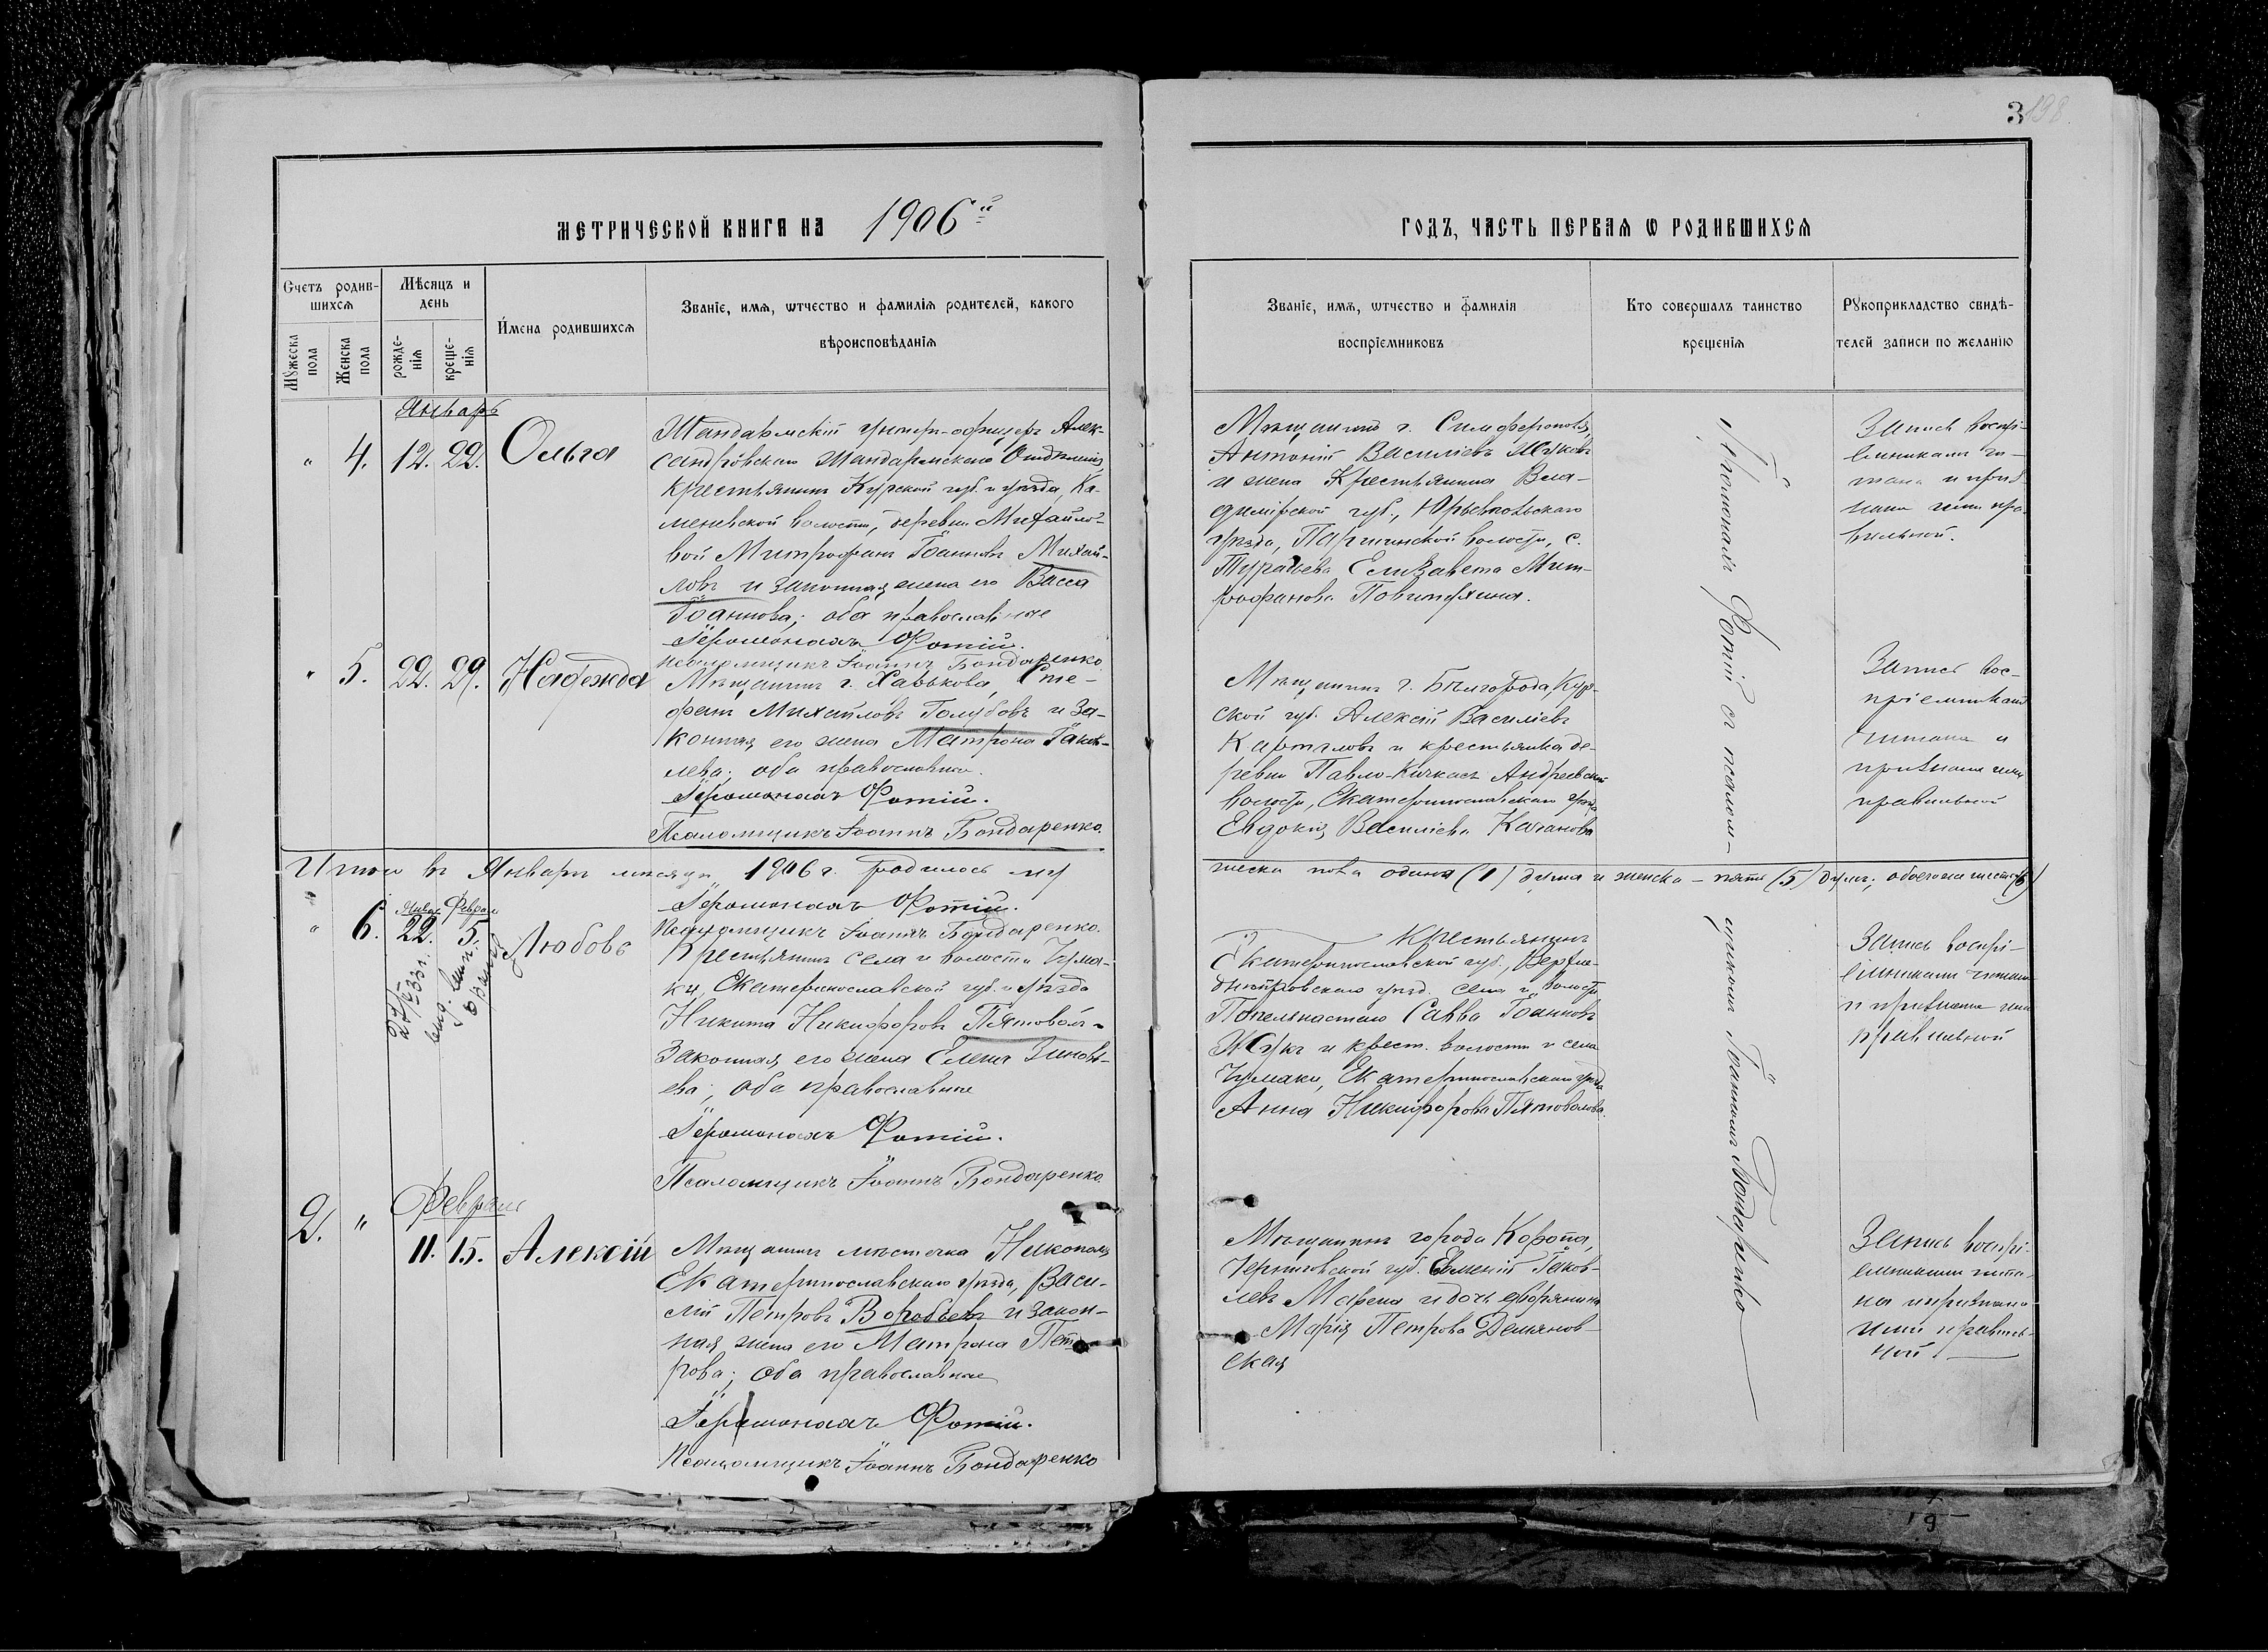 3198.
МЕТРИЧЕСКОЙ КНИГИ НА 1906й
ГОДЪ, ЧАСТЬ ПЕРВАѦ Ѡ РОДИВШИХСѦ
Счетъ родив-
шихсѧ
Мꙋжеска пола
Женска пола
Мѣсѧцъ и
день
рожде-
нiѧ
креще-
нiѧ
Имена родившихсѧ
Званiе, имѧ, ѡтчество и фамилiѧ родителей, какого
вѣроисповѣданiѧ
Званiе, имѧ, ѡтчество и фамилiѧ
воспрiемниковъ
Кто совершалъ таинство
крещенiѧ
Рꙋкоприкладство свидѣ-
телей записи по желанiю
Январь
" 4. 12. 22. Ольга
Жандармскій унтер-офицеръ Алек-
сандровскаго Жандармскаго Отдѣленія,
крестьянинъ Курской губ. и уѣзда, Ка-
меневской волости, деревни Михайло-
вой Митрофанъ Іоанновъ Михай-
ловъ и законная жена его Васса
Іоаннова; оба православные
Іеромонахъ Фотій.
псаломщикъ Іоаннъ Бондаренко.
Мѣщанинъ г. Симферополя,
Антоній Васильевъ Жуковъ
и жена крестьянина Вла-
димірской губ., Юрьевскаго
уѣзда, Паршинской волости, с.
Елизавета Мит-
рофанова
Запись воспрі-
емниками чи-
тана и приз-
нана ими пра-
вильной.
" 5. 22. 29. Надежда
Мѣщанинъ г. Харькова, Сте-
фанъ Михайловъ Голубовъ и за-
конная его жена Матрона Іаков-
лева; оба православные.
Іеромонахъ Фотій.
Псаломщикъ Іоаннъ Бондаренко.
Мѣщанинъ г. Бѣлгорода, Кур-
ской губ. Алексій Василіевъ
и крестьянка де-
ревни Павло-Кичкасъ Андреевской
волости, Екатеринославскаго уѣзда
Евдокія Василіева Качанова
Запись вос-
пріемниками
читана и
признана ими
правильной
Итого въ Январѣ мѣсяцѣ 1906 г. родилось му
жеска пола одинъ (1) душа и женска – пять (5) душъ; обоего пола шесть (6)
Іеромонахъ Фотій.
Псаломщикъ Іоаннъ Бондаренко.
Январ Феврал
" 6. 22. 5. Любовь
Крестьянинъ села и волости Чума-
ки, Екатеринославской губ. и уѣзда
Никита Никифоровъ Пятовол и
законная его жена Елена Зиновь-
ева; оба православные
Іеромонахъ Фотій.
Псаломщикъ Іоаннъ Бондаренко.
Крестьянинъ
Екатеринославской губ., Верхне-
днѣпровскаго уѣзд. села и волости
Попельнастаго Савва Іоанновъ
Жукъ и крест. волости и села
Чумаки, Екатеринославскаго уѣзда
Анна Никифорова Пятоволова.
Запись воспрі-
емниками читана
и признана ими
правильной
Февраль
2. " 11. 15. Алексій
Мѣщанинъ мѣстечка Никополя
Екатеринославскаго уѣзда, Васи-
лій Петровъ Воробьевъ и закон-
ная жена его Матрона Пет-
рова; оба православные
Іеромонахъ Фотій.
Псаломщикъ Іоаннъ Бондаренко
Мѣщанинъ города Коропа,
Черниговской губ. Евменій Іаков-
левъ Марена и дочь дворянина
Марія Петрова Демянов-
ская
Запись воспрі-
емниками чита-
на и признана
ими правиль-
ной.
Іеромонахъ Фотій съ псалом-
щикомъ Іоанномъ Бондаренко